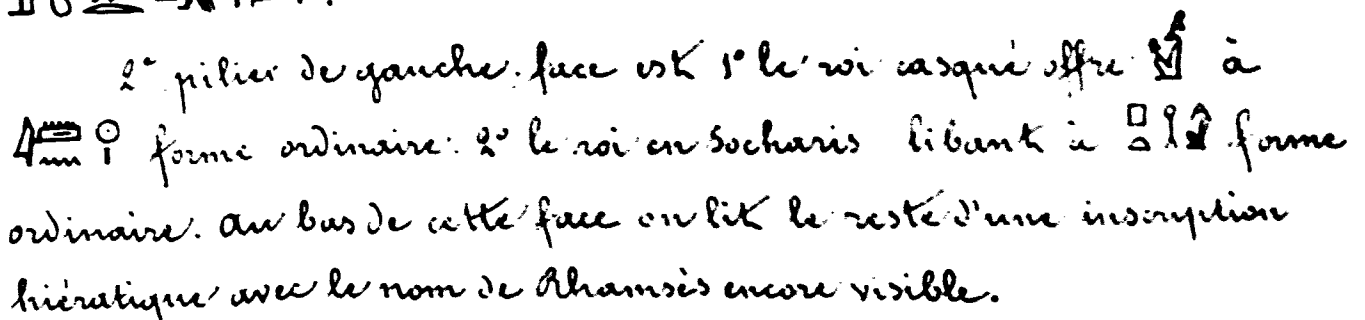 2º pilier de gauche. face est 1º le roi casqué offre à
𓇋𓏠𓈖𓇳𓏤 forme ordinaire. 2º le roi en Socharis libant à 𓊪𓏏𓎛 forme
ordinaire. au bas de cette face on lit le reste d'une inscription
hiératique avec le nom de Rhamsès encore visible.